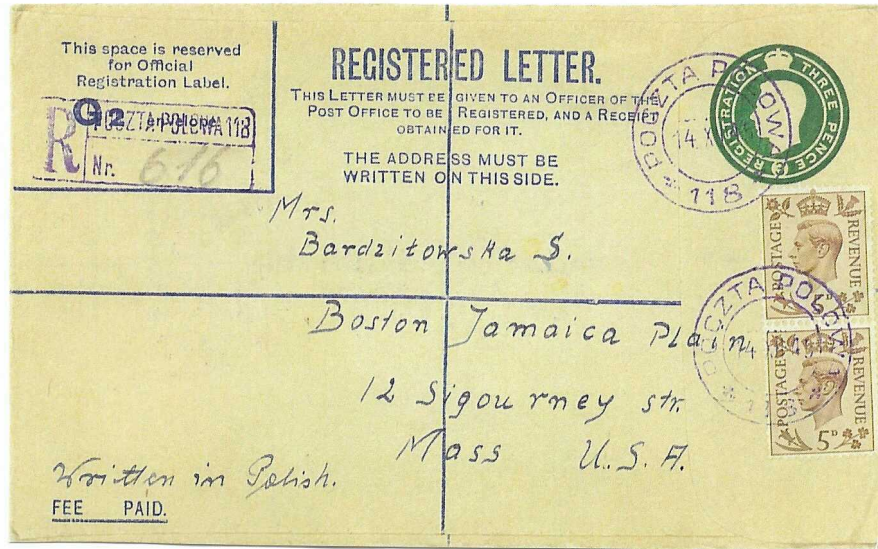 This space is reserved
for Official
Registration Label.
R
G2
POCZTA POLOWA 118
Nr. 616
REGISTERED LETTER.
THIS LETTER MUST BE GIVEN TO AN OFFICER OF THE
POST OFFICE TO BE REGISTERED, AND A RECEIPT
OBTAINED FOR IT.
THE ADDRESS MUST BE
WRITTEN ON THIS SIDE.
REGISTRATION THREE PENCE
POCZTA POLOWA
118
Mrs.
Bardzitowska S.
POSTAGE REVENUE
POCZTA POLOWA
118
POSTAGE REVENUE
5D
Boston Jamaica Plain
12 Sigourney str.
Mass U.S.A.
Written in Polish.
FEE PAID.